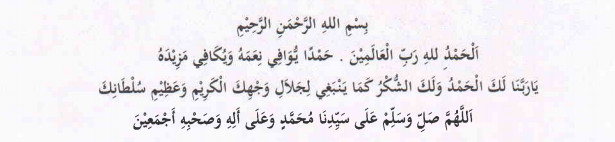 بِسْمِ اللهِ الرَّحْمَنِ الرَّحِيْمِ
اَلْحَمْدُ للهِ رَبِّ الْعَالَمِيْنَ . حَمْدًا يُّوَافِي نِعَمَهُ وَيُكَافِي مَزِيْدَهُ
يَارَبَّنَا لَكَ الْحَمْدُ وَلَكَ الشُّكْرُ كَمَا يَنْبَغِي لِجَلاَلِ وَجْهِكَ الْكَرِيْمِ وَعَظِيْمِ سُلْطَانِكَ
اَللَّهُمَّ صَلِّ وَسَلِّمْ عَلَى سَيِّدِنَا مُحَمَّدٍ وَعَلَى أَلِهِ وَصَحْبِهِ أَجْمَعِيْنَ